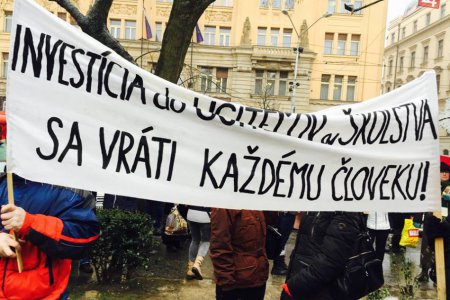 INVESTÍCIA do UČITEĽOV a ŠKOLSTVA
SA VRÁTI KAŽDÉMU ČLOVEKU!